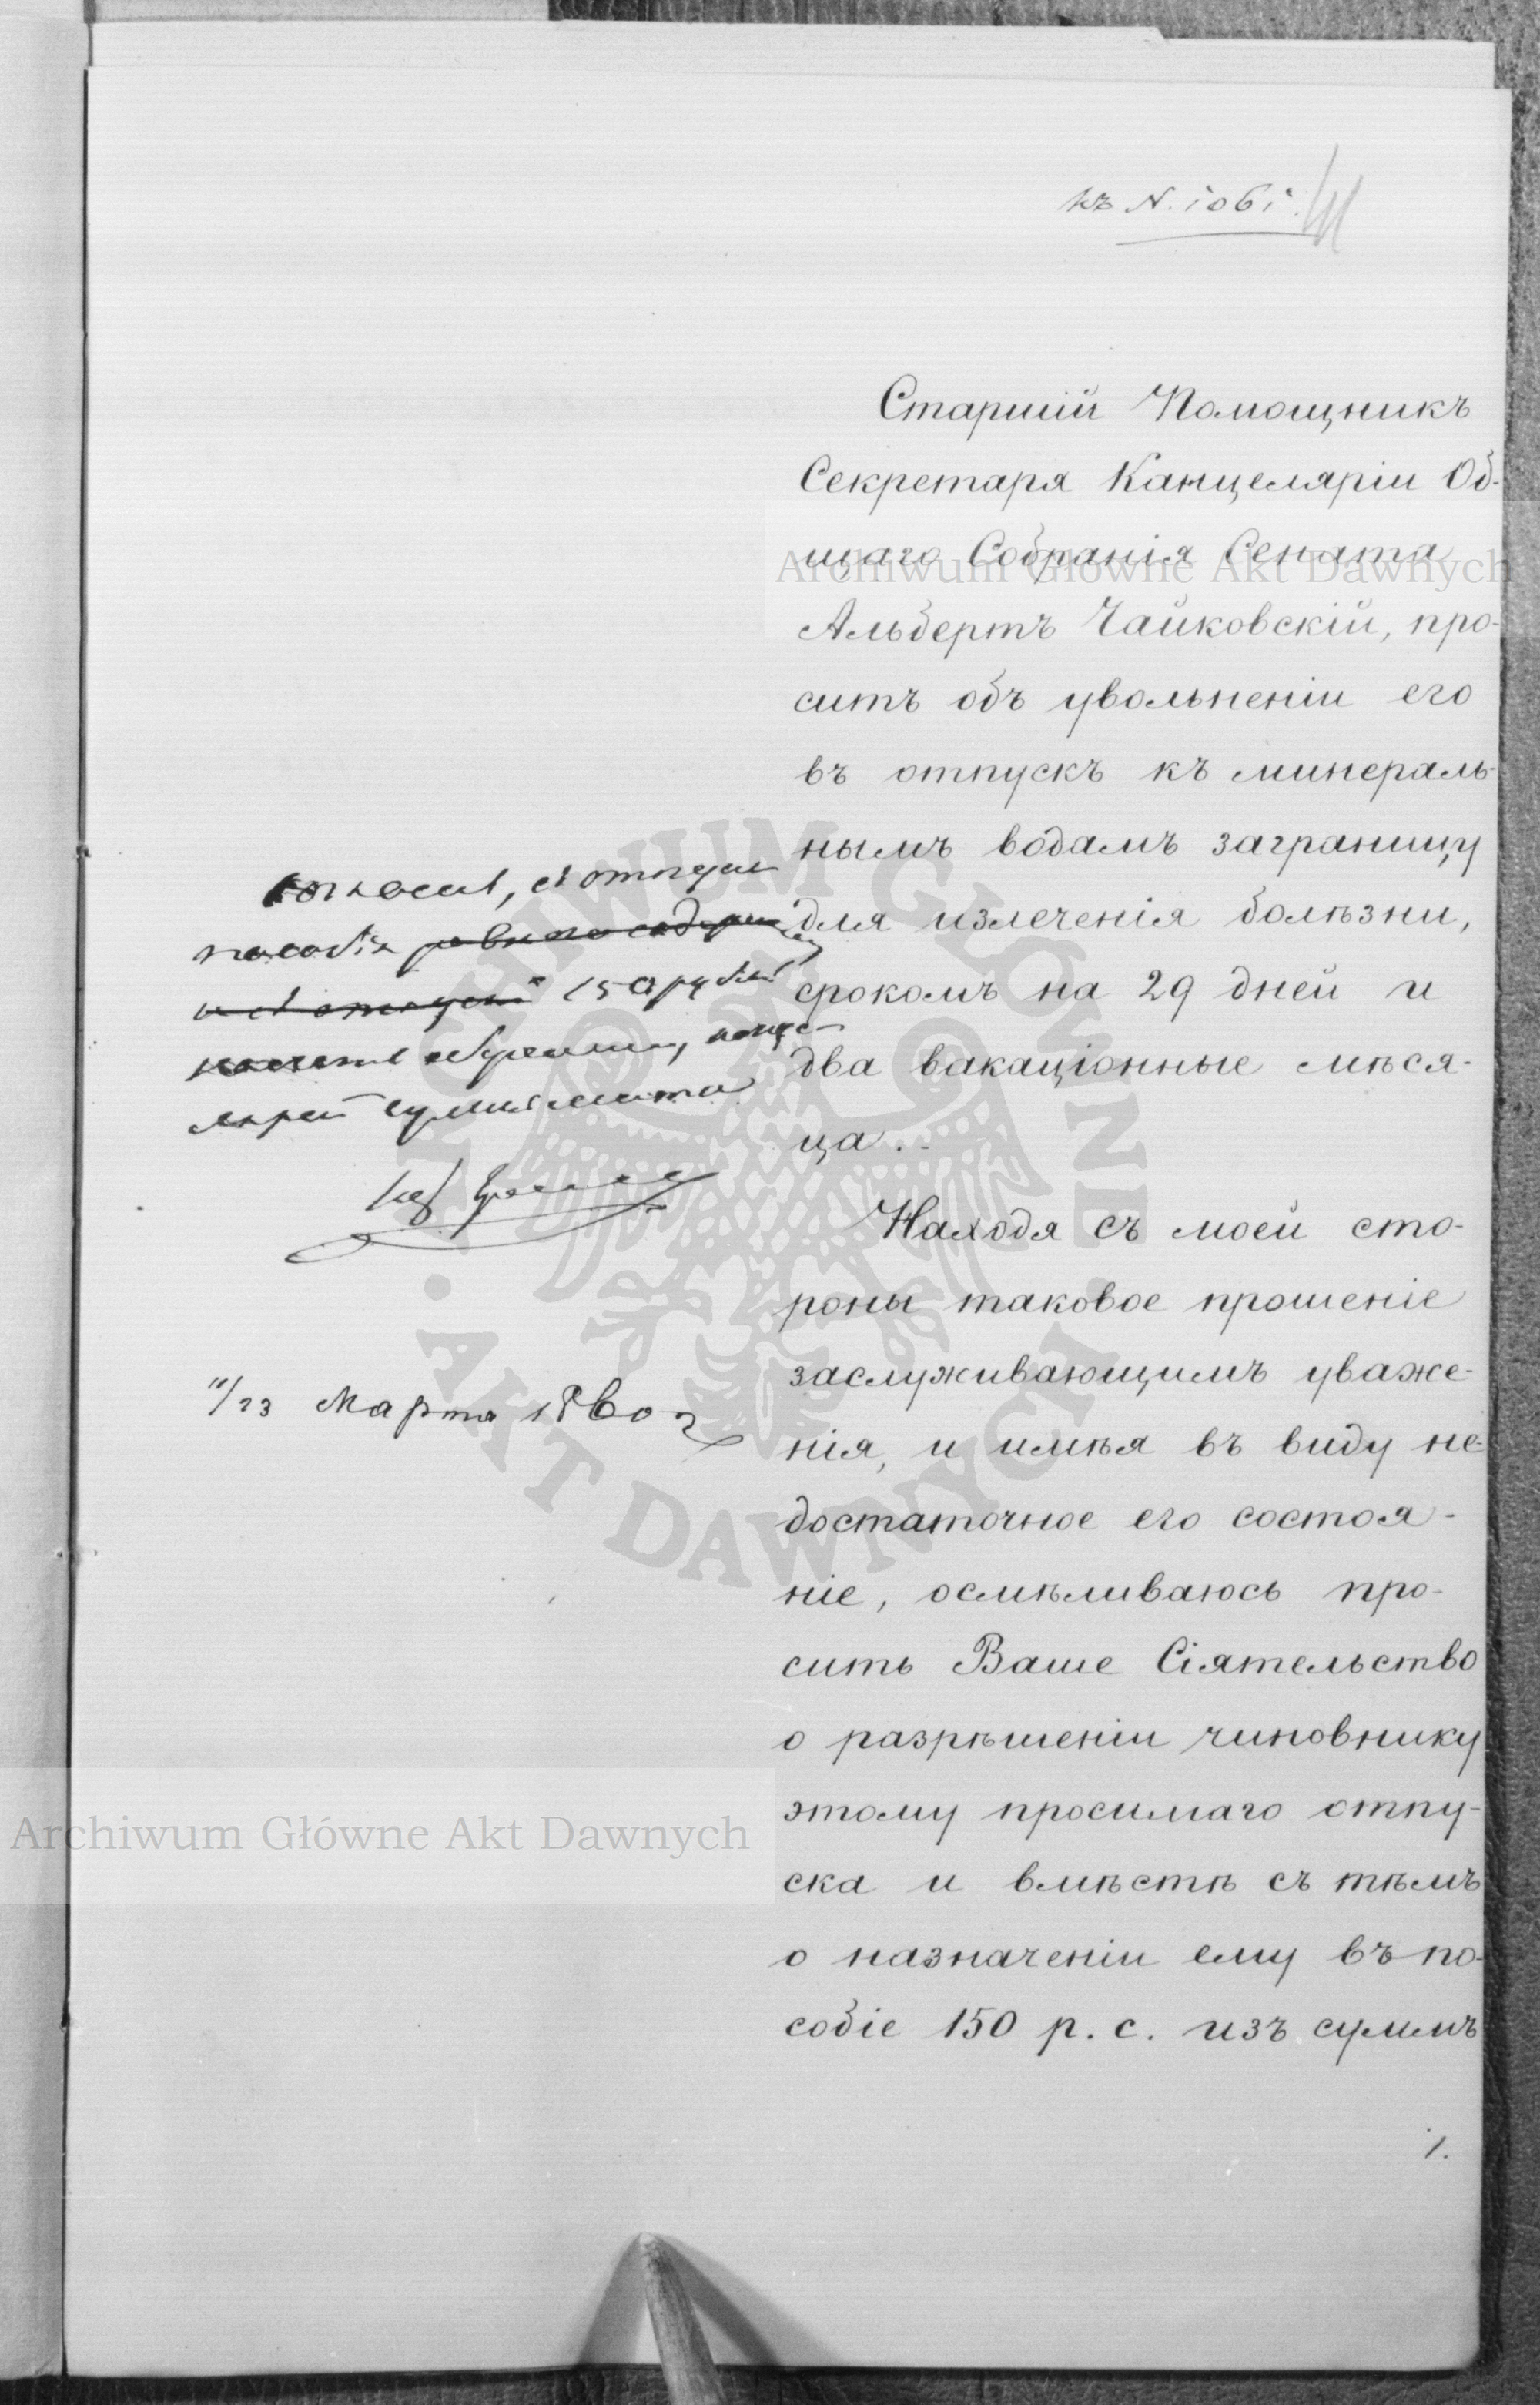 къ N. 1061.
Старшій Помощникъ
Секретаря Канцеляріи Об-
щаго Собранія Сената
Альбертъ Чайковскій, про-
ситъ объ увольненіи его
въ отпускъ къ минераль-
нымъ водамъ заграницу
для излеченія болѣзни,
срокомъ на 29 дней и
два вакаціонные мѣся-
ца.-
Находя съ моей сто-
роны таковое прошеніе
заслуживающимъ уваже-
нія, и имѣя въ виду не-
достаточное его состоя-
ніе, осмѣливаюсь про-
сить Ваше Сіятельство
о разрѣшеніи чиновнику
этому просимаго отпу-
ска и вмѣстѣ съ тѣмъ
о назначеніи ему въ по-
собіе 150 р. с. изъ суммъ
1.
пособія
150 рублей
11/23 Марта 1860 г
Archiwum Główne Akt Dawnych
Archiwum Główne Akt Dawnych
ARCHIWUM GŁÓWNE AKT DAWNYCH